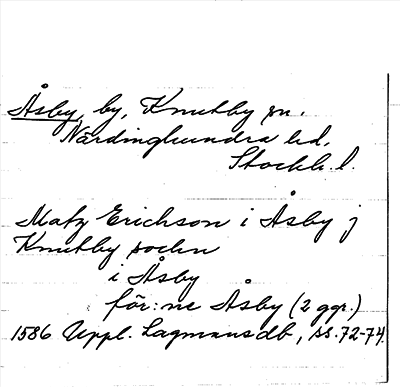 Åsby, by, Knutby sn.
Närdinghundra hd,
Stockh. l.
Matz Erichson i Åsby j
Knutby sockn
i Åsby
för:ne Åsby (2 ggr.)
1586 Uppl. Lagmansdb, ss. 72-74.